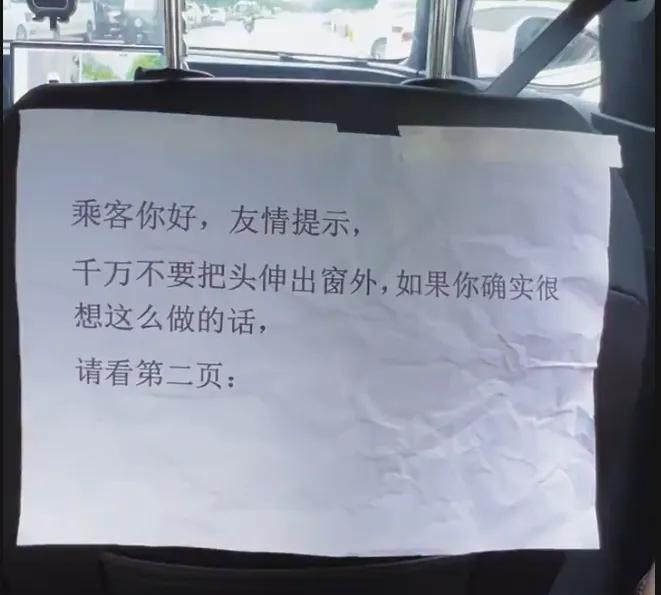 乘客你好，友情提示，
千万不要把头伸出窗外，如果你确实很
想这么做的话，
请看第二页：